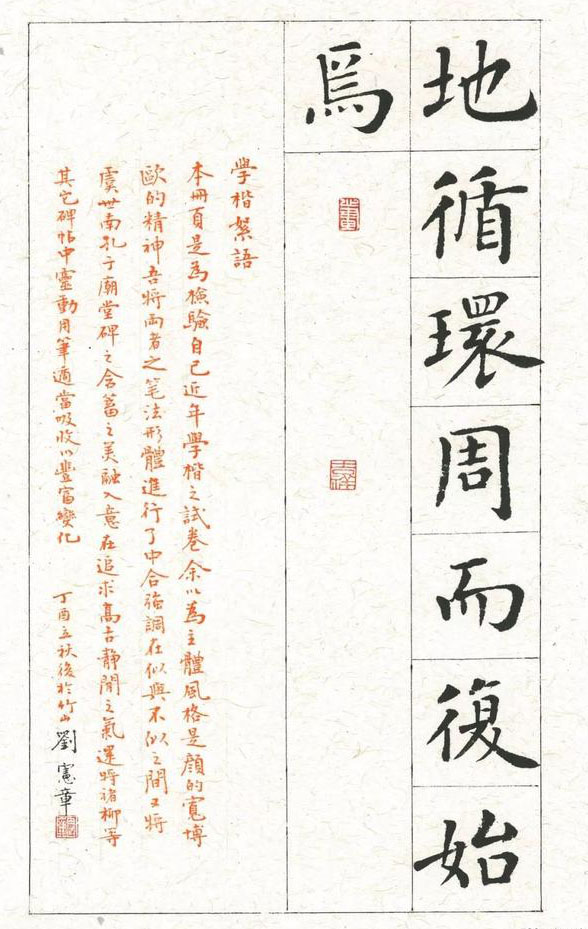 地循環周而復始
焉
學楷絮語
本冊頁是為檢驗自己近年學楷之試卷余以為主體風格是顏的寬博
歐的精神吾將兩者之笔法形體進行了中合強調在似與不似之間又將
虞世南孔子廟堂碑之含蓄之美融入意在追求高古静閒之氣運將褚柳等
其它碑帖中靈動用筆適當吸收以豐富變化
丁酉立秋後於竹山劉憲章